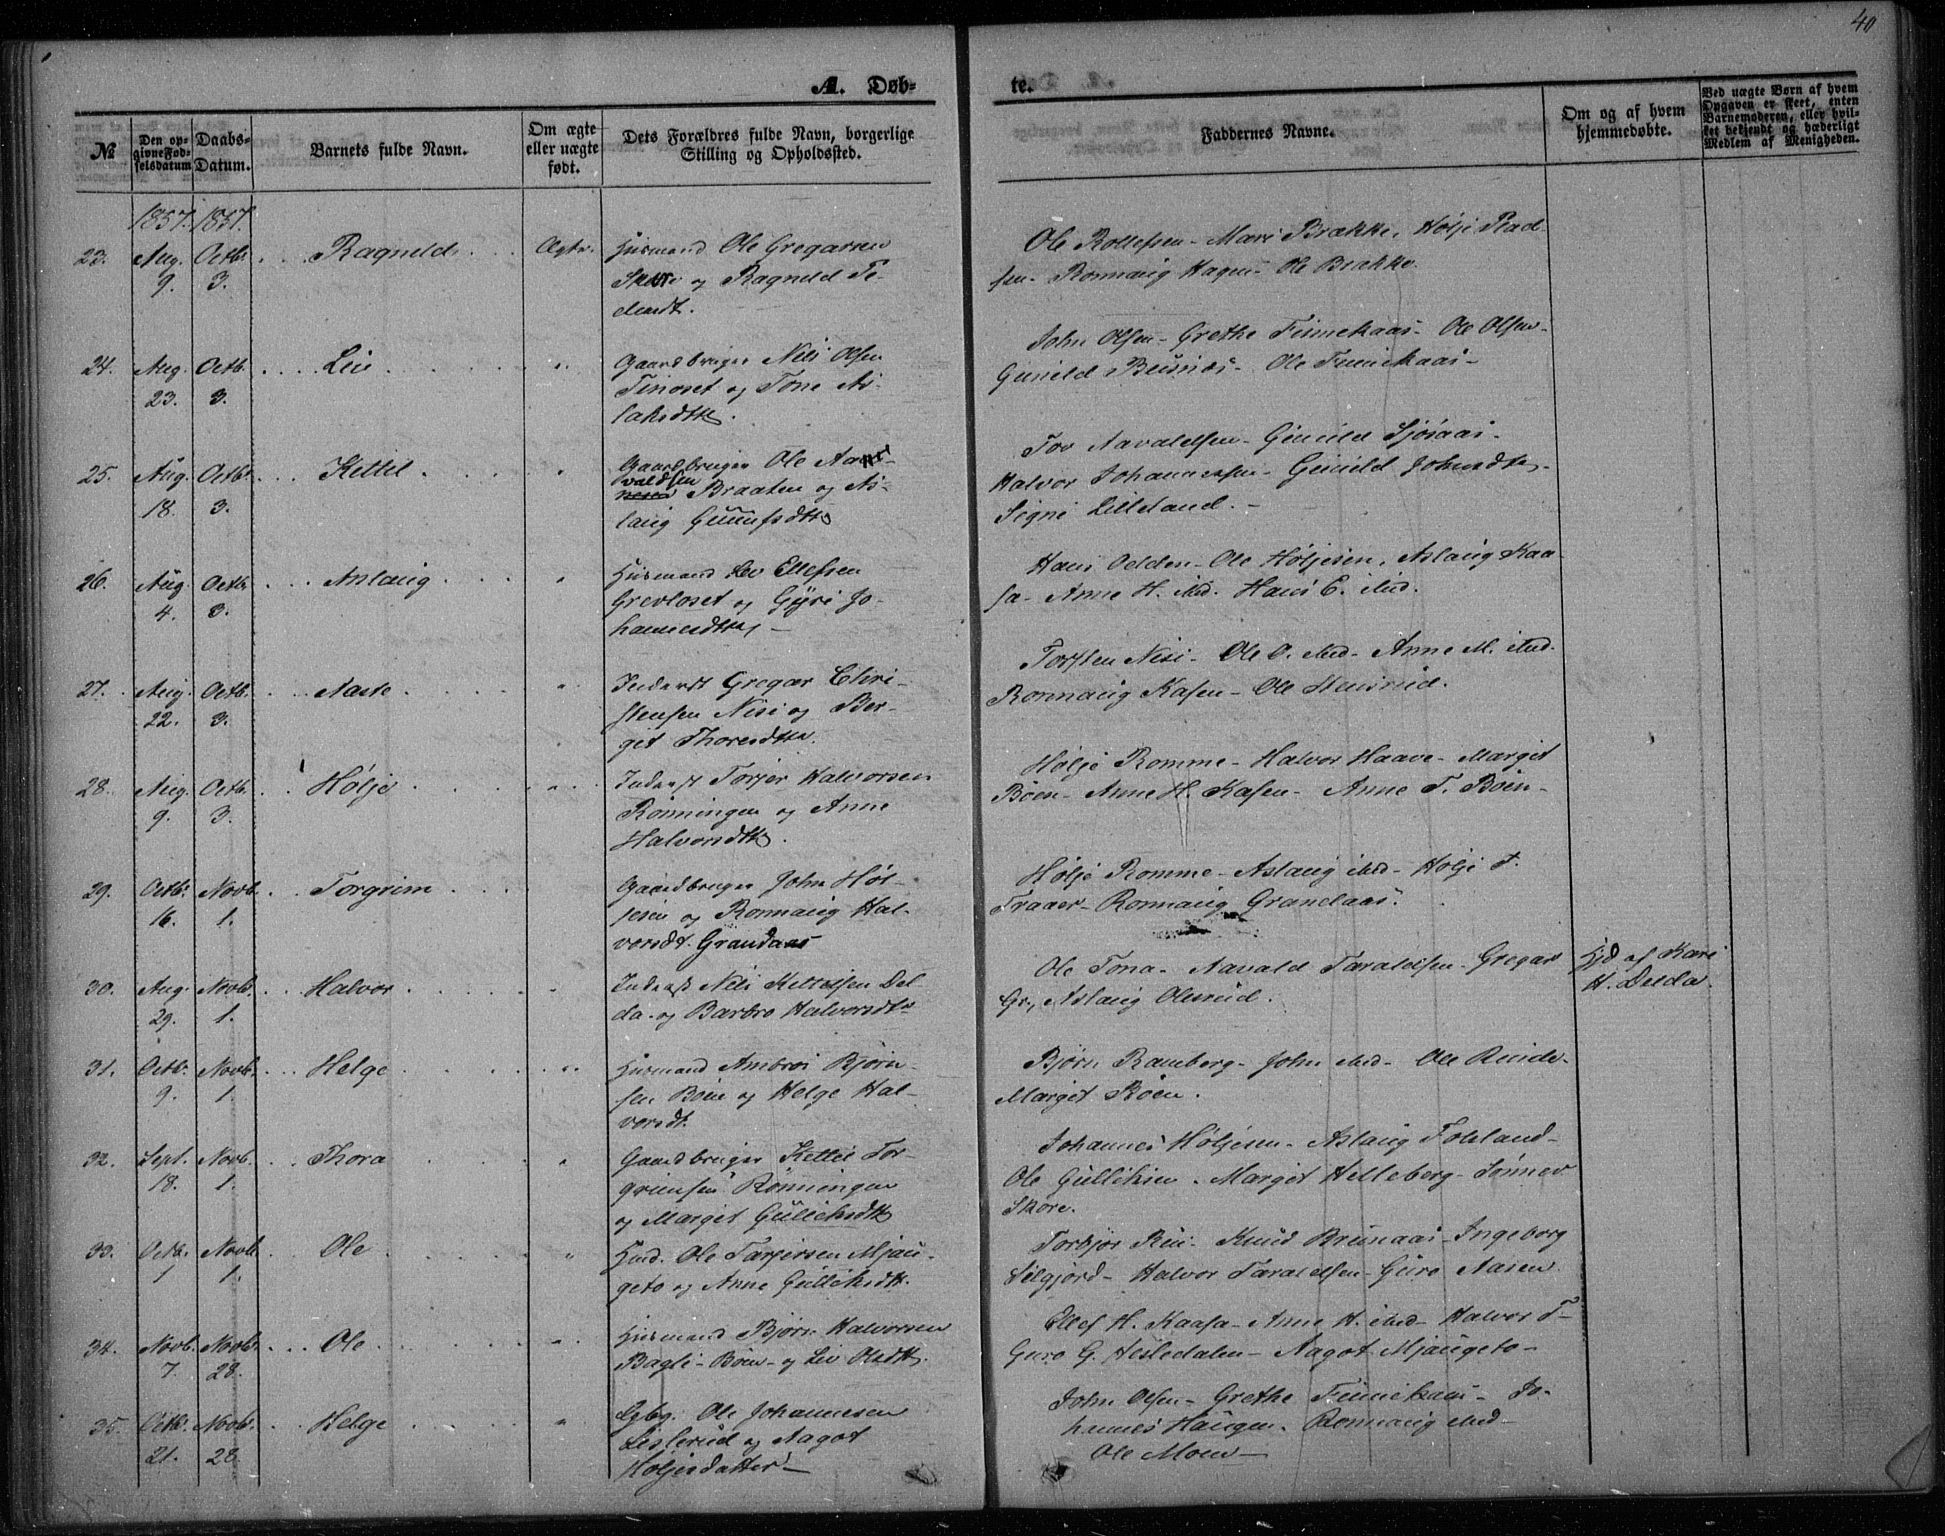 40
A. Døb-
te.
№
Den op-
givne Fød-
selsdatum
Daabs-
Datum.
Barnets fulde Navn.
Om ægte
eller uægte
født.
Dets Forældres fulde Navn, borgerlige
Stilling og Opholdssted.
Faddernes Navne.
Om og af hvem
hjemmedøbte.
Ved uægte Børn af hvem
Opgaven er skeet, enten
Barnemoderen, eller hvil-
ket bekjendt og hæderligt
Medlem af Menigheden.
1857. 1857.
23. Aug. Octb. Ragnild Ægte. Husmand Ole Gregarsen
9. 3. Skare og Ragnild
Ole Rollefsen - Mari Brække, Høljе
sen - Ronnaug Hagen - Ole Brække
24. Aug. Octb. Liv Gaardbruger Nils Olsen
23. 3. Tinoset og Tone As-
laksdtt.
John Olsen - Grethe Finnekaas - Ole Olsen -
Gunild Busnes - Ole Finnekaas -
25. Aug. Octb. Kittil Gaardbruger Ole Aa
valdsen
18. 3. Braaten og As-
laug Gunufsdtt
Tov Aavaldsen - Gunild Sjøsaas -
Halvor Johannessen - Gunild Johnsdtr -
Signe Lilleland. -
26. Aug. Octb. Aslaug Husmand Lev Ellefsen
4. 3. Grevloset og Gyri Jo-
hannesdtr -
Hans Odden - Ole Høljesen, Aslaug Kaa-
sa - Anne H. ibid. Hans E. ibid.
27. Aug. Octb. Aaste Inderst Gregar Chri-
22. 3. stensen Nisi og Ber-
git Thoresdtr
Torsten Nisi - Ole O. ibid - Anne M. ibid.
Ronnaug Kasen - Ole Hensrud.
28. Aug. Octb. Hølje Inderst Torjer Halvorsen
9. 3. Rønningen og Anne
Halvorsdtt.
Hølje Romme - Halvor Haave - Margit
Bøen - Anne H. Kasen - Anne T. Bøen -
29. Octb. Novb. Torgrim Gaardbruger John Høl-
16. 1. jesen og Ronnaug Hal-
vorsdt. Grandaas
Hølje Romme - Aslaug ibid - Hølje T.
Traaer - Ronnaug Grandaas.
30. Aug. Novb. Halvor Inderst Nils Kittilsen Del-
29. 1. da og Barbro Halvorsdtr
Ole Tona - Aavald Taraldsen - Gregar
Gr., Aslaug Olesrud.
Hjd af Kari
H. Delda.
31. Octb. Novb. Helge Husmand Ambros Bjørn-
9. 1. sen Bøen og Helge Hal-
vorsdt.
Bjørn Ramberg - John ibid - Ole Rinde.
Margit Bøen.
32. Sept. Novb. Thora Gaardbruger Kittil Tor-
18. 1. grimsen Rønningen
og Margit Gulliksdtt
Johannes Høljesen - Aslaug Folsland -
Ole Gulliksen - Margit Helleberg - Sønnev
Skore.
33. Octb. Novb. Ole Husd. Ole Tarjersen Mjau-
1 1. geto og Anne Gulliksdtt.
Torbjør Rui - Knud Brunaas - Ingeborg
Seljord - Halvor Taraldsen - Guro Aasen.
34. Novb. Novb. Ole Husmand Bjørn Halvorsen
7. 28. Bagli - Bøen - og Liv Olsdtt.
Ellef H. Kaasa - Anne H. ibid - Halvor T -
Guro G. Hesledalen - Aagot Mjaugeto -
35. Octb. Novb. Helge Ggbg. Ole Johannesen
21. 28. Lislerud og Aagot
Høljesdatter -
John Olsen - Grethe Finnekaas - Jo-
hannes Haugen. Ronnaug ibid -
Ole Moen -